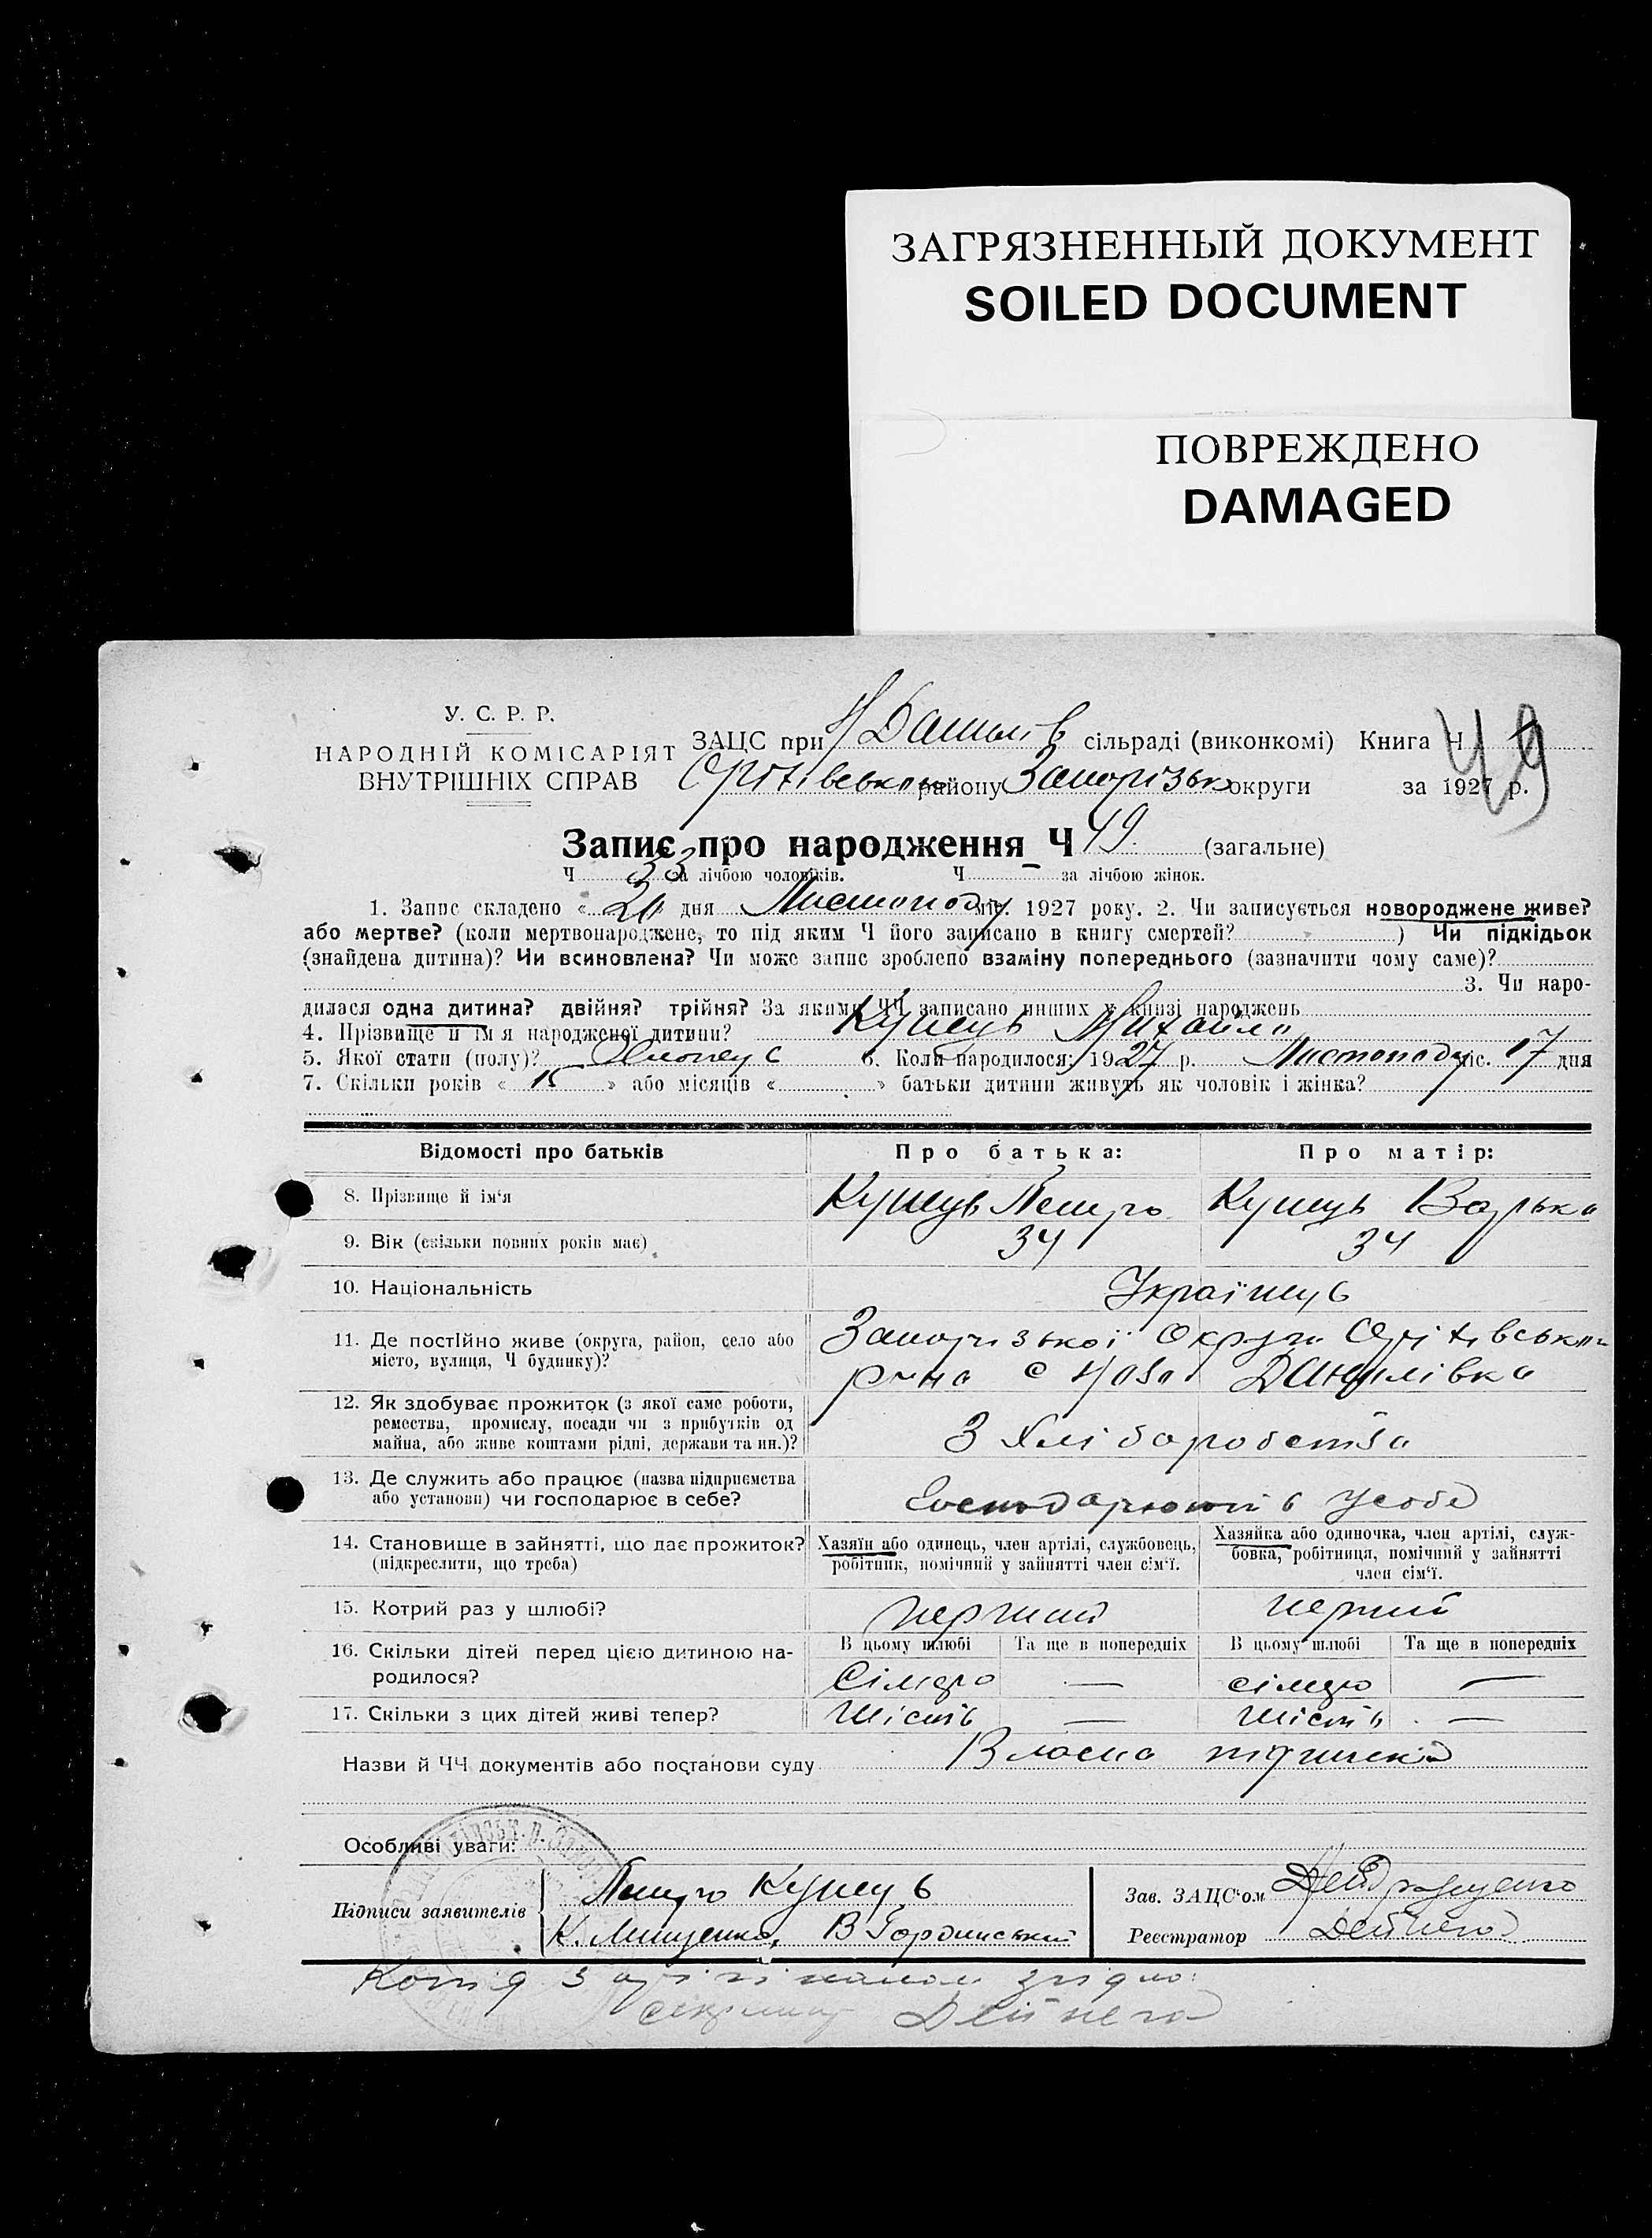 ЗАГРЯЗНЕННЫЙ ДОКУМЕНТ
SOILED DOCUMENT
ПОВРЕЖДЕНО
DAMAGED
У. С. Р. Р.
НАРОДНІЙ КОМІСАРІЯТ
ВНУТРІШНІХ СПРАВ
ЗАЦС при Н Данилів сільраді (виконкомі) Книга Ч
району Запорізьк округи за 1927 р.
49
Запис про народження Ч 49. (загальне)
Ч 33 за лічбою чоловіків. Ч за лічбою жінок.
1. Запис складено « » дня Листопаду міс. 1927 року. 2. Чи записується новороджене живе?
або мертве? (коли мертвонароджене, то під яким Ч його записано в книгу смертей? ) Чи підкідьок
(знайдена дитина)? Чи всиновлена? Чи може запис зроблено взаміну попереднього (зазначити чому саме)?
3. Чи наро-
дилася одна дитина? двійня? трійня? За якими ЧЧ записано инших у книзі народжень
4. Прізвище й ім'я народженої дитини? Кунець Михайло
5. Якої стати (полу)? Хлопець 6. Коли народилося: 1927 р. Листопаду міс. 17 дня
7. Скільки років « 15 » або місяців « » батьки дитини живуть як чоловік і жінка?
Відомості про батьків Про батька: Про матір:
8. Прізвище й ім'я Кунець Петро Кунець Варька
9. Вік (скільки повних років має) 34 34
10. Національність Українець
11. Де постійно живе (округа, район, село або
місто, вулиця, Ч будинку)?
Запорізької Округи
р-на с Ново Данилівка
12. Як здобуває прожиток (з якої саме роботи,
ремества, промислу, посади чи з прибутків од
майна, або живе коштами рідні, держави та ин.)?
З Хліборобства
13. Де служить або працює (назва підприємства
або установи) чи господарює в себе?
Господарюють у собе
14. Становище в зайнятті, що дає прожиток?
(підкреслити, що треба)
Хазяїн або одинець, член артілі, службовець,
робітник, помічний у зайнятті член сім'ї.
Хазяйка або одиночка, член артілі, служ-
бовка, робітниця, помічний у зайнятті
член сім'ї.
15. Котрий раз у шлюбі? перший перший
16. Скільки дітей перед цією дитиною на-
родилося?
В цьому шлюбі Та ще в попередніх В цьому шлюбі Та ще в попередніх
Сімеро — сімеро —
17. Скільки з цих дітей живі тепер? Шість — Шість —
Назви й ЧЧ документів або постанови суду Власна
Особливі уваги:
Підписи заявителів Петро Кунець
К. Мищенко, В Гординський
Зав. ЗАЦС'ом
Реєстратор Дейнега
Копія з оригіналом згідно:
секретар Дейнега